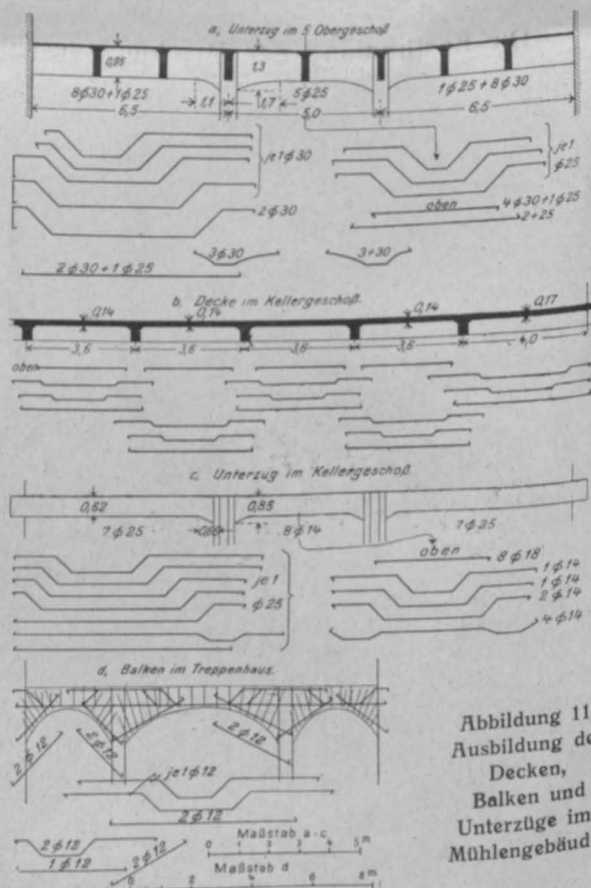 a, Unterzug im 5 Obergeschoß
0,95
1,3
8ϕ30+1ϕ25
1,1
1,7
5ϕ25
1ϕ25+8ϕ30
6,5
5,0
6,5
je1ϕ30
je1
ϕ25
oben
4ϕ30+1ϕ25
2+25
2ϕ30
3ϕ30
3+30
2ϕ30+1ϕ25
b. Decke im Kellergeschoß.
0,14
0,14
0,14
0,17
3,6
3,6
3,6
3,6
4,0
oben
c. Unterzug im Kellergeschoß.
0,62
0,85
7ϕ25
8ϕ14
7ϕ25
oben
8ϕ18
1ϕ14
1ϕ14
2ϕ14
4ϕ14
je1
ϕ25
d, Balken im Treppenhaus.
2ϕ12
2ϕ12
2ϕ12
je1ϕ12
2ϕ12
2ϕ12
1ϕ12
2ϕ12
Maßstab a-c
0 1 2 3 4 5m
Maßstab d
0 2 4 6 8m
Abbildung 11
Ausbildung de
Decken,
Balken und
Unterzüge im
Mühlengebäud